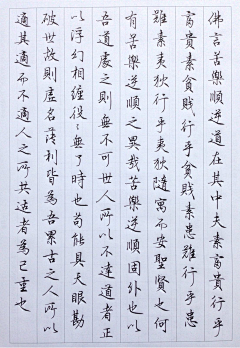 佛言苦樂順逆道在其中夫素富貴行乎
富貴素貧賤行乎貧賤素患難行乎患
難素夷狄行乎夷狄隨寓而安聖賢也何
有苦樂逆順之異哉苦樂逆順固外也以
吾道處之則無不可世人所以不達道者正
以浮幻相纏役役無了時也苟能具天眼勘
破世故則虛名薄利皆為吾累古之人所以
適其適而不適人之所共適者為已重也